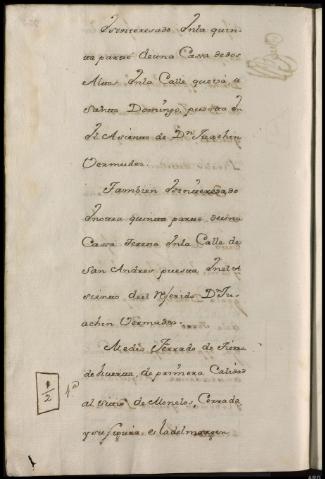 Ynteresado Ynla quin-
ta parte de una Cassa de dos
Altos Ynla Calle que va a
Santo Domingo, puesta Yn
Yl Asiento de Dn. Juachin
Vermudez.
Tambien Ynteresado
Ynotra quinta parte, de una
Cassa terrena Ynla Calle de
San Andres puesta Ynel A
siento del Referido Dn. Ju-
achin Vermudez.
Medio Ferrado de
de huerta, de primera Calidad
al sitio de Monelos, Cerrada
y su figura, es la del margen
1/2 1ª